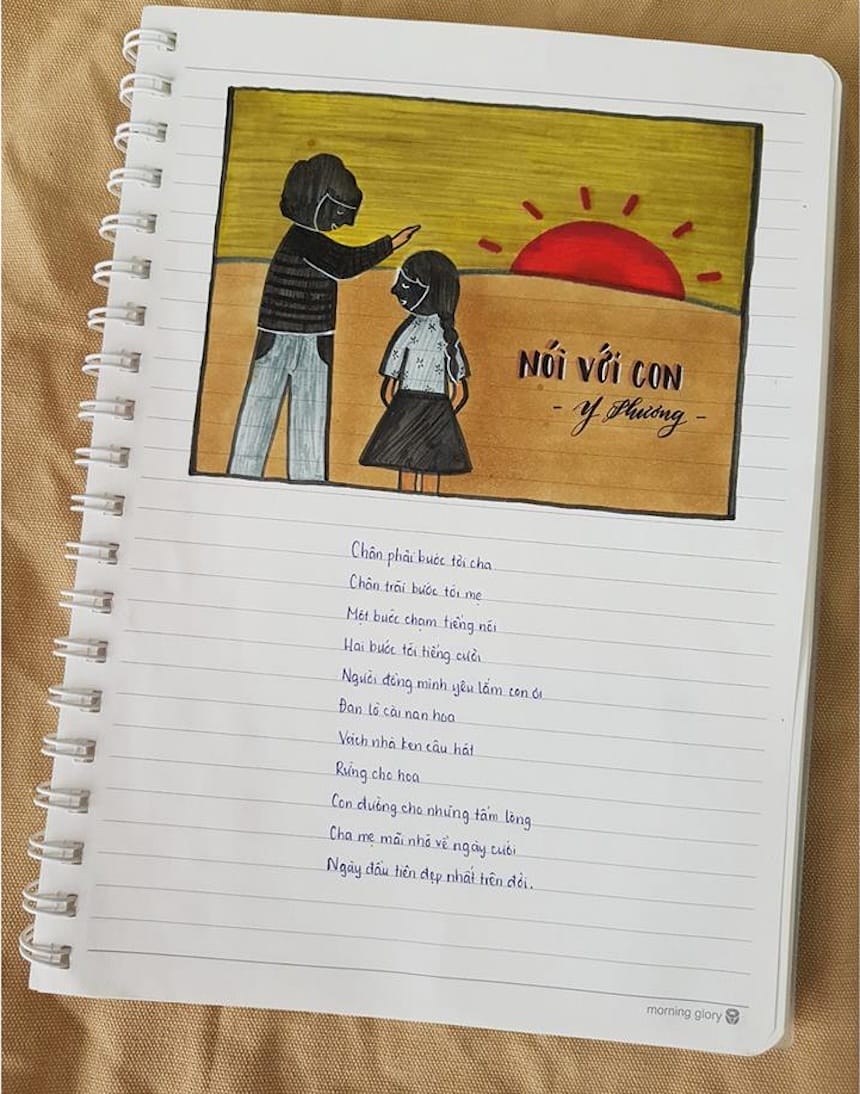 NÓI VỚI CON
- Y Phương -
Chân phải bước tới cha
Chân trái bước tới mẹ
Một bước chạm tiếng nói
Hai bước tới tiếng cười
Người đồng mình yêu lắm con ơi
Đan lờ cài nan hoa
Vách nhà ken câu hát
Rừng cho hoa
Con đường cho những tấm lòng
Cha mẹ mãi nhớ về ngày cưới
Ngày đầu tiên đẹp nhất trên đời.
morning glory